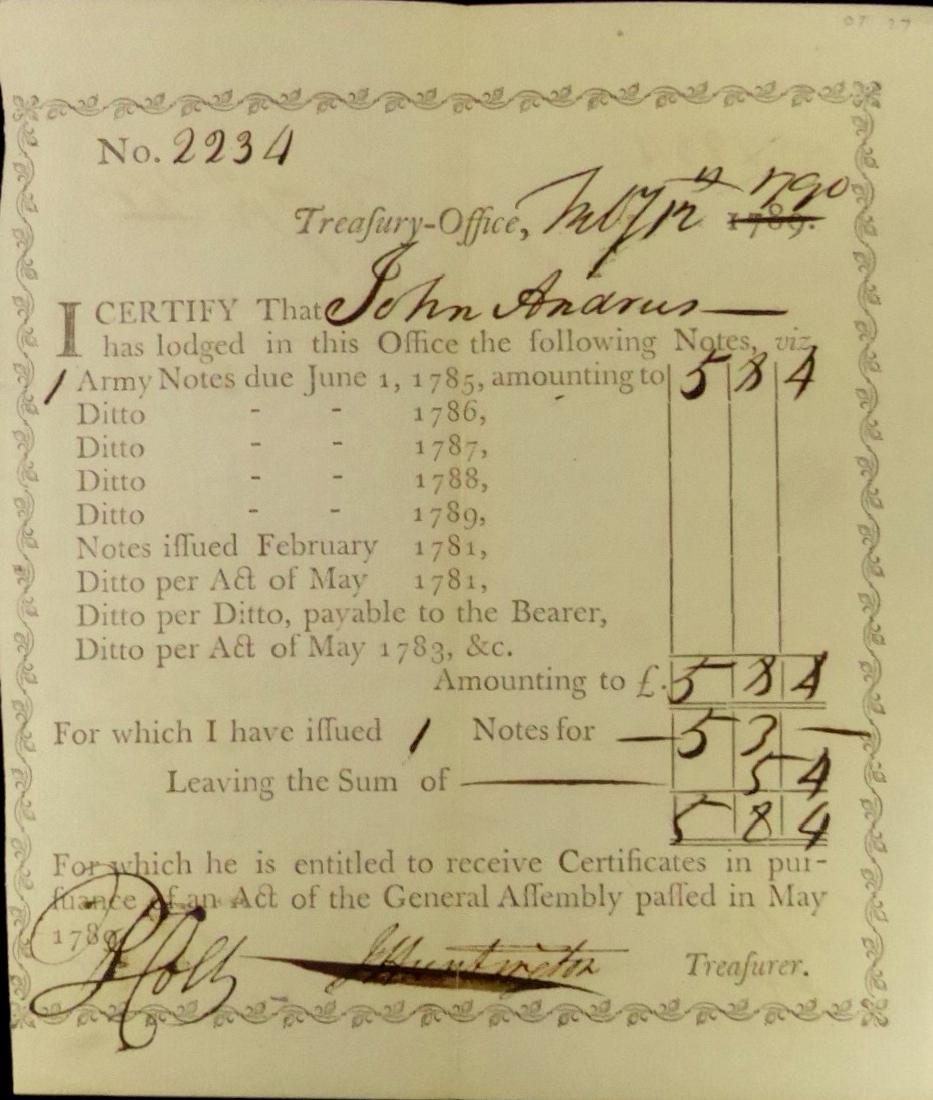 No. 2234
Treaſury-Office, 1790 1789.
I CERTIFY That John Andrus
has lodged in this Office the following Notes, viz.
1 Army Notes due June 1, 1785, amounting to 5 8 4
Ditto - - 1786,
Ditto - - 1787,
Ditto - - 1788,
Ditto - - 1789,
Notes iſſued February 1781,
Ditto per Act of May 1781,
Ditto per Ditto, payable to the Bearer,
Ditto per Act of May 1783, &c.
Amounting to £. 5 8 4
For which I have iſſued 1 Notes for — 5 3 —
Leaving the Sum of — 5 4
5 8 4
For which he is entitled to receive Certificates in pur-
ſuance of an Act of the General Aſſembly paſſed in May
1789.
J Huntington Treaſurer.